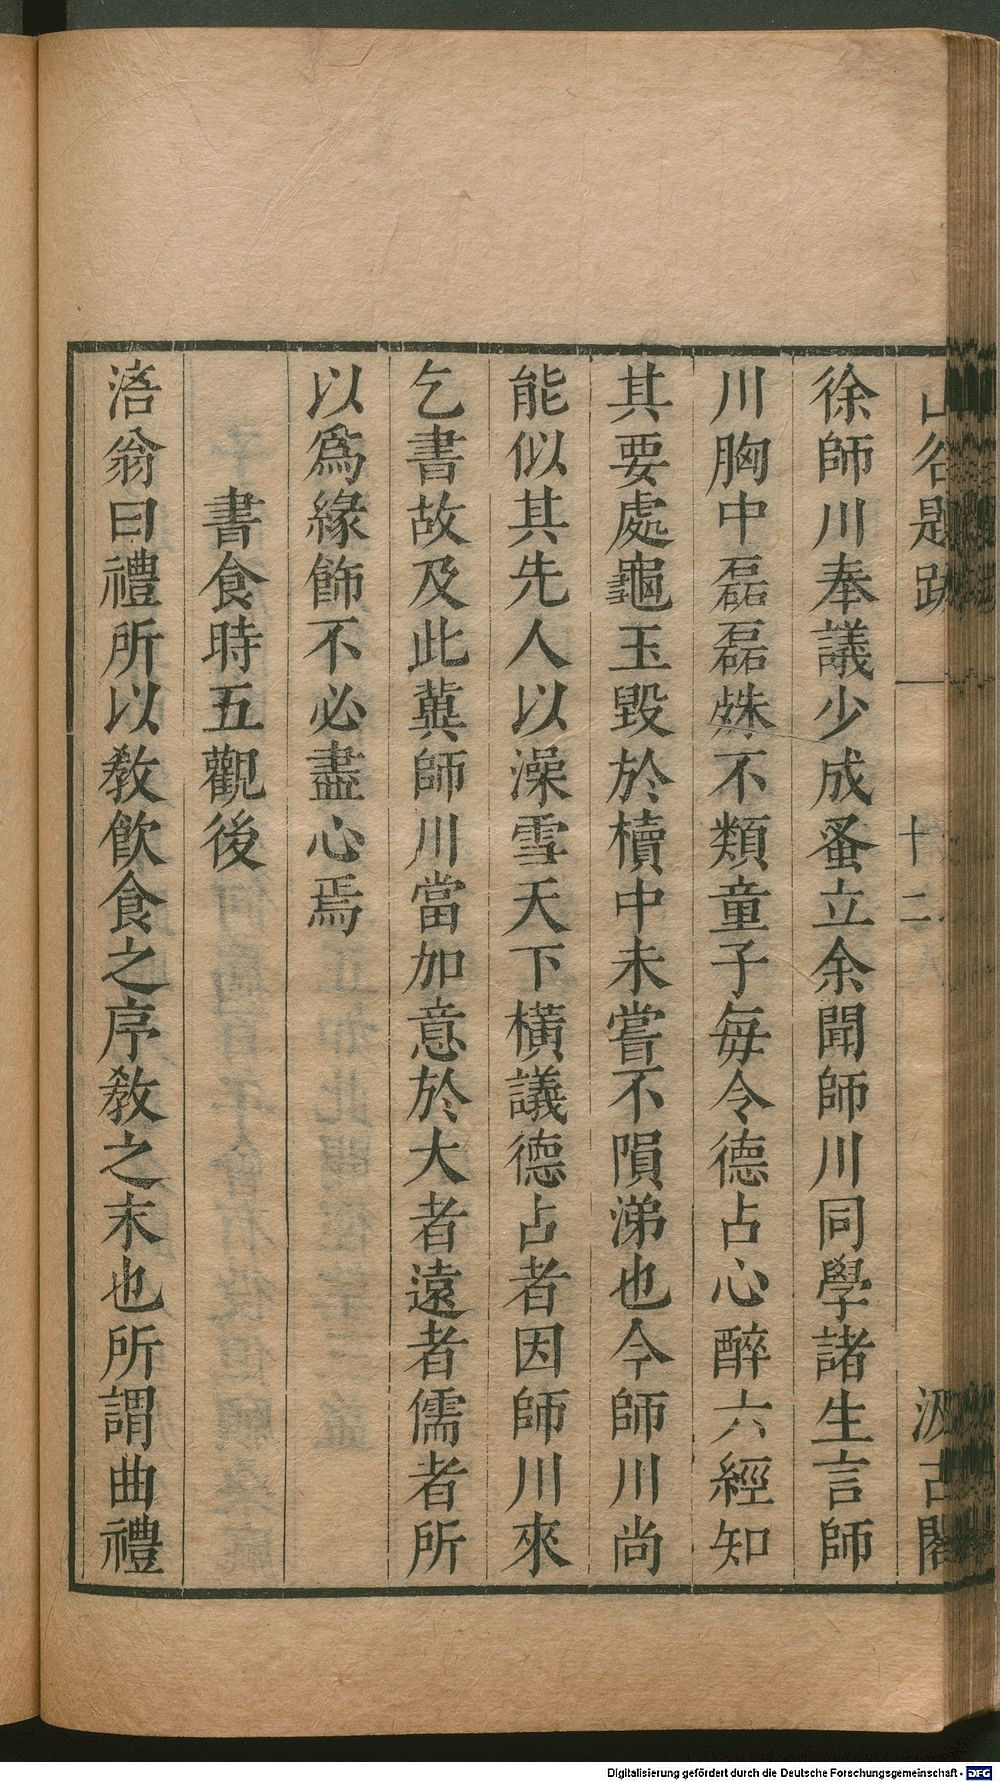 山谷題跋
十二
汲古閣
徐師川奉議少成蚤立余聞師川同學諸生言師
川胸中磊磊殊不類童子每令德占心醉六經知
其要處龜玉毀於櫝中未嘗不隕涕也今師川尚
能似其先人以澡雪天下橫議德占者因師川來
乞書故及此冀師川當加意於大者遠者儒者所
以爲緣飾不必盡心焉
書食時五觀後
涪翁曰禮所以敎飲食之序敎之末也所謂曲禮
Digitalisierung gefördert durch die Deutsche Forschungsgemeinschaft - DFG